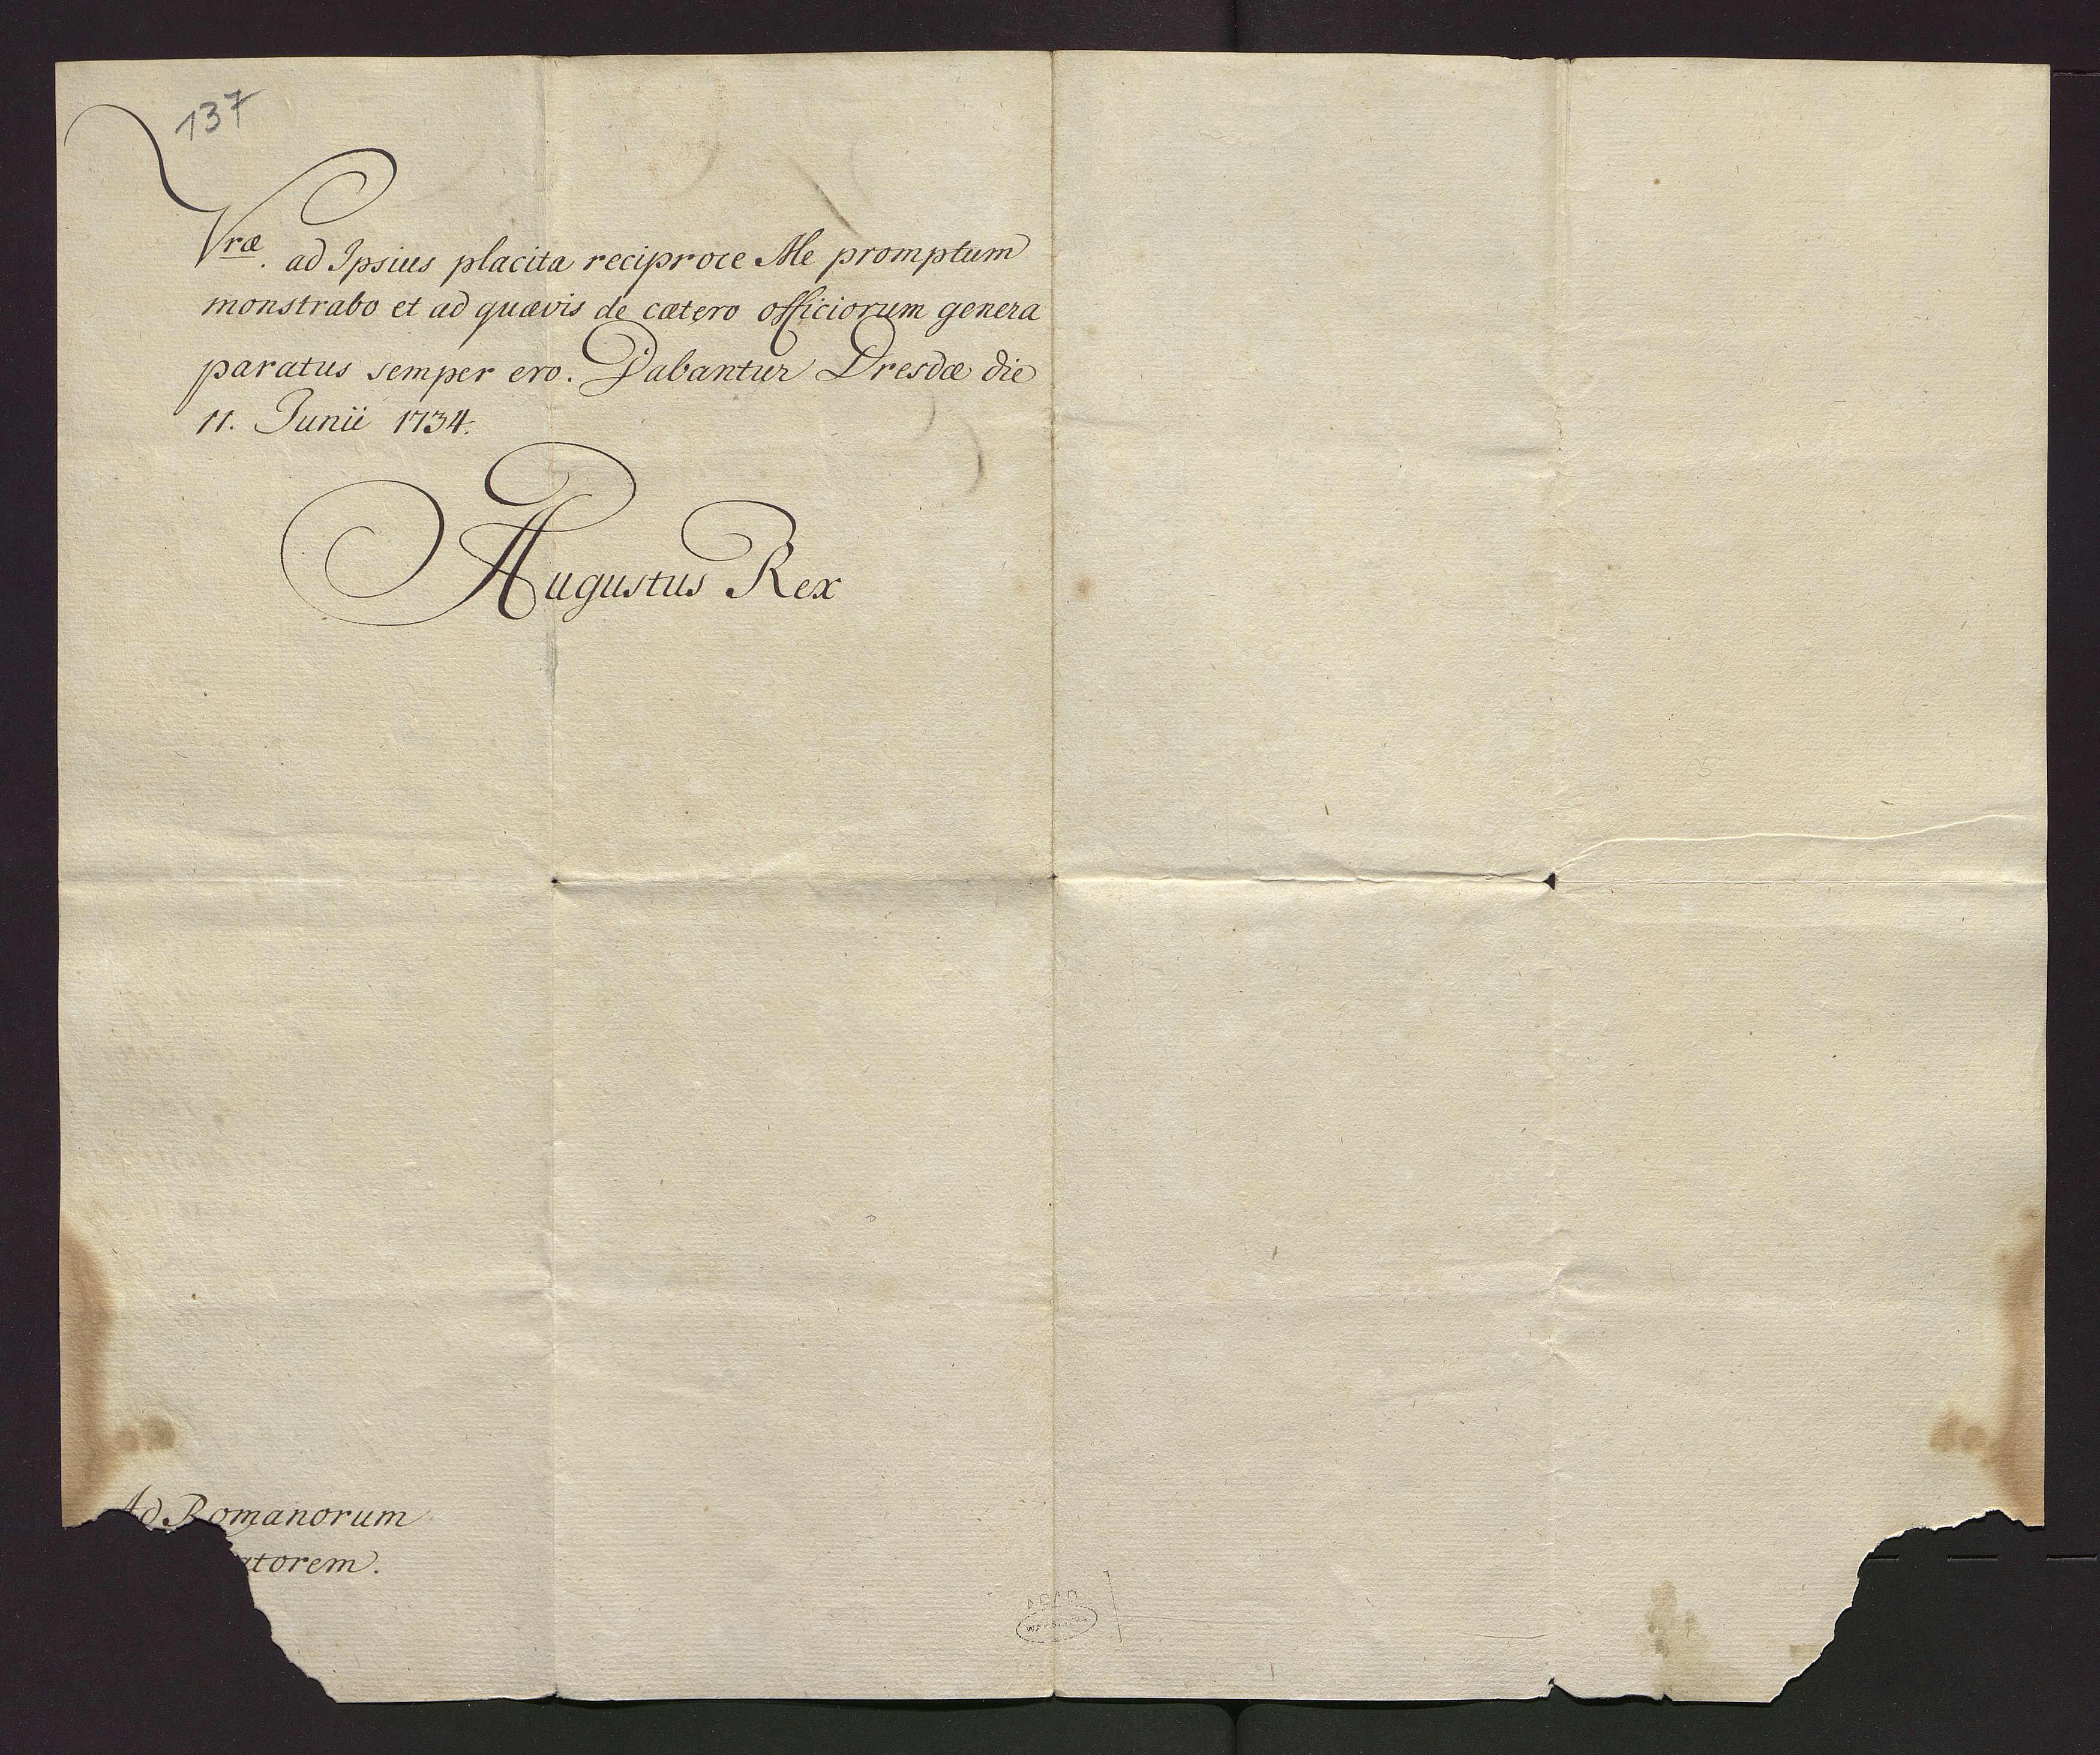 137
Vræ. ad Ipsius placita reciproce Me promptum
monstrabo et ad quævis de cætero officiorum genera
paratus semper ero. Dabantur Dresdæ die
11. Junii 1734.
Augustus Rex
Ad Romanorum
atorem.